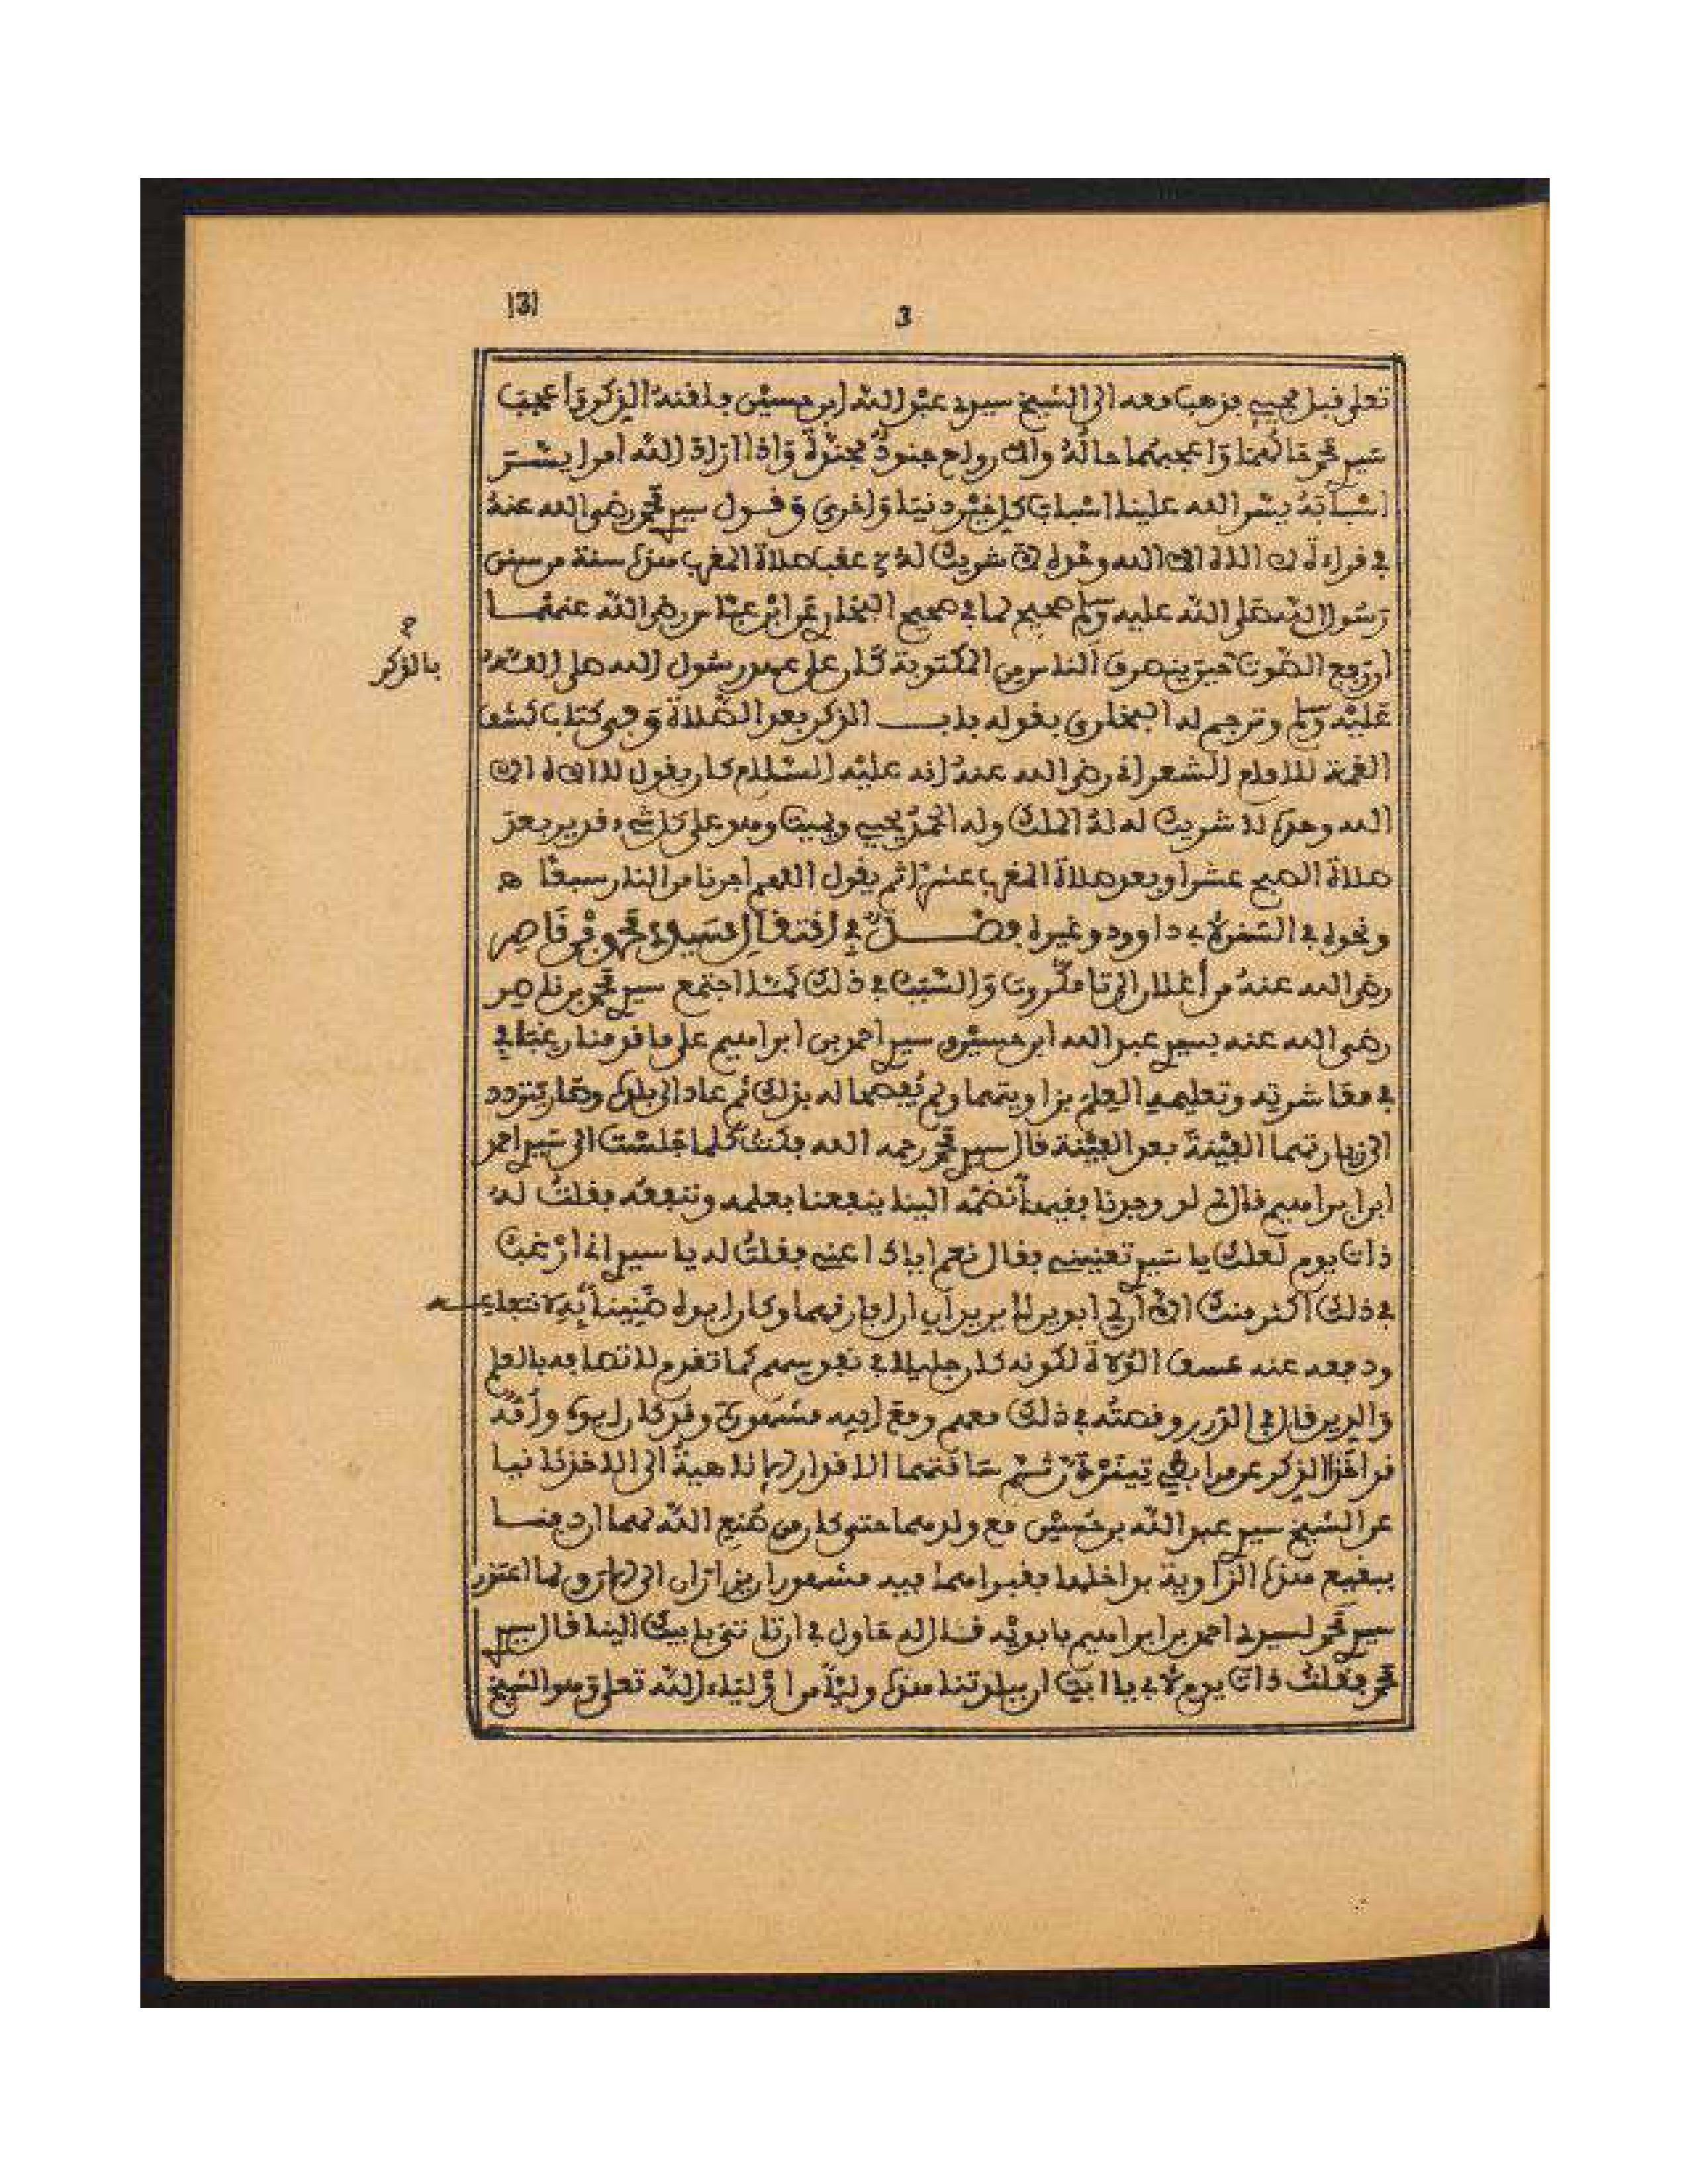 |3|
3
تعلى قبل مجيبه فذهب معه الى الشيخ سيدي عبد الله ابن حسين فلقنه الذكر وأعجب
سيد محمد حالهما وأعجبهما حاله والارواح جنود مجندة وإذا اراد الله امرا يسر
اسبابه يسر الله علينا اسباب كل خير دنيا وأخرى وقول سيد محمد رضي الله عنه
في قراءة لا اله الا الله وحده لا شريك له عقب صلاة المغرب هذه سنة من سنن
رسول الله صلى الله عليه وسلم صحيح لما في صحيح البخاري عن ابن عباس رضي الله عنهما
ان رفع الصوت حين ينصرف الناس من المكتوبة كان على عهد رسول الله صلى الله
بالذكر
عليه وسلم وترجم له البخاري بقوله باب الذكر بعد الصلاة وفي كتاب كشف
الغمة للامام الشعراني رضي الله عنه انه عليه السلام كان يقول لا اله الا
الله وحده لا شريك له له الملك وله الحمد يحيي ويميت وهو على كل شيء قدير بعد
صلاة الصبح عشرا وبعد صلاة المغرب عشرا ثم يقول اللهم اجرنا من النار سبعا ه
ونحوه في السنن لابي داوود وغيره فصل في انتقال سيدي محمد بن ناصر
رضي الله عنه من أغلان الى تامكروت والسبب في ذلك لما اجتمع سيد محمد بن ناصر
رضي الله عنه بسيد عبد الله ابن حسين وسيد احمد بن ابراهيم على ما قدمنا رغبا في
في معاشرته وتعليمه العلم بزاويتهما ولم يفصحا له بذلك ثم عاد الى بلده وصار يتردد
الى زيارتهما الفينة بعد الفينة قال سيد محمد رحمه الله فكنت كلما جلست الى سيد احمد
ابن ابراهيم قال لي لو وجدنا فقيها نضمه الينا ينفعنا بعلمه وننفعه فقلت له
ذات يوم لعلك يا سيد تعنيني فقال نعم اياك اعني فقلت له يا سيد اني ارغب
في ذلك اكثر منك الا أن لي ابوين لا يريدان فراقهما وكان ابوه ضنينا به لانتفاعه
ودفعه عنه عسف الولاة لكونه كان جليلا في نفوسهم كما تقدم لاتصافه بالعلم
والدين قال في الدرر وقصته في ذلك معهم ومع ابيه مشهورة وقد كان ابوه وأمه
عن الشيخ سيد عبد الله بن حسين مع ولدهما حتى كان من صنع الله لهما ان دفنا
ببقيع هذه الزاوية بداخلها فقبراهما فيه مشهوران يزاران الى
سيد محمد لسيدي احمد بن ابراهيم بابويه قال له حاول في ان تاتي بابيك الينا قال سيد
محمد فقلت ذات يوم لابي يا ابت ان ببلدتنا هذه وليا من اولياء الله تعلى وهو الشيخ